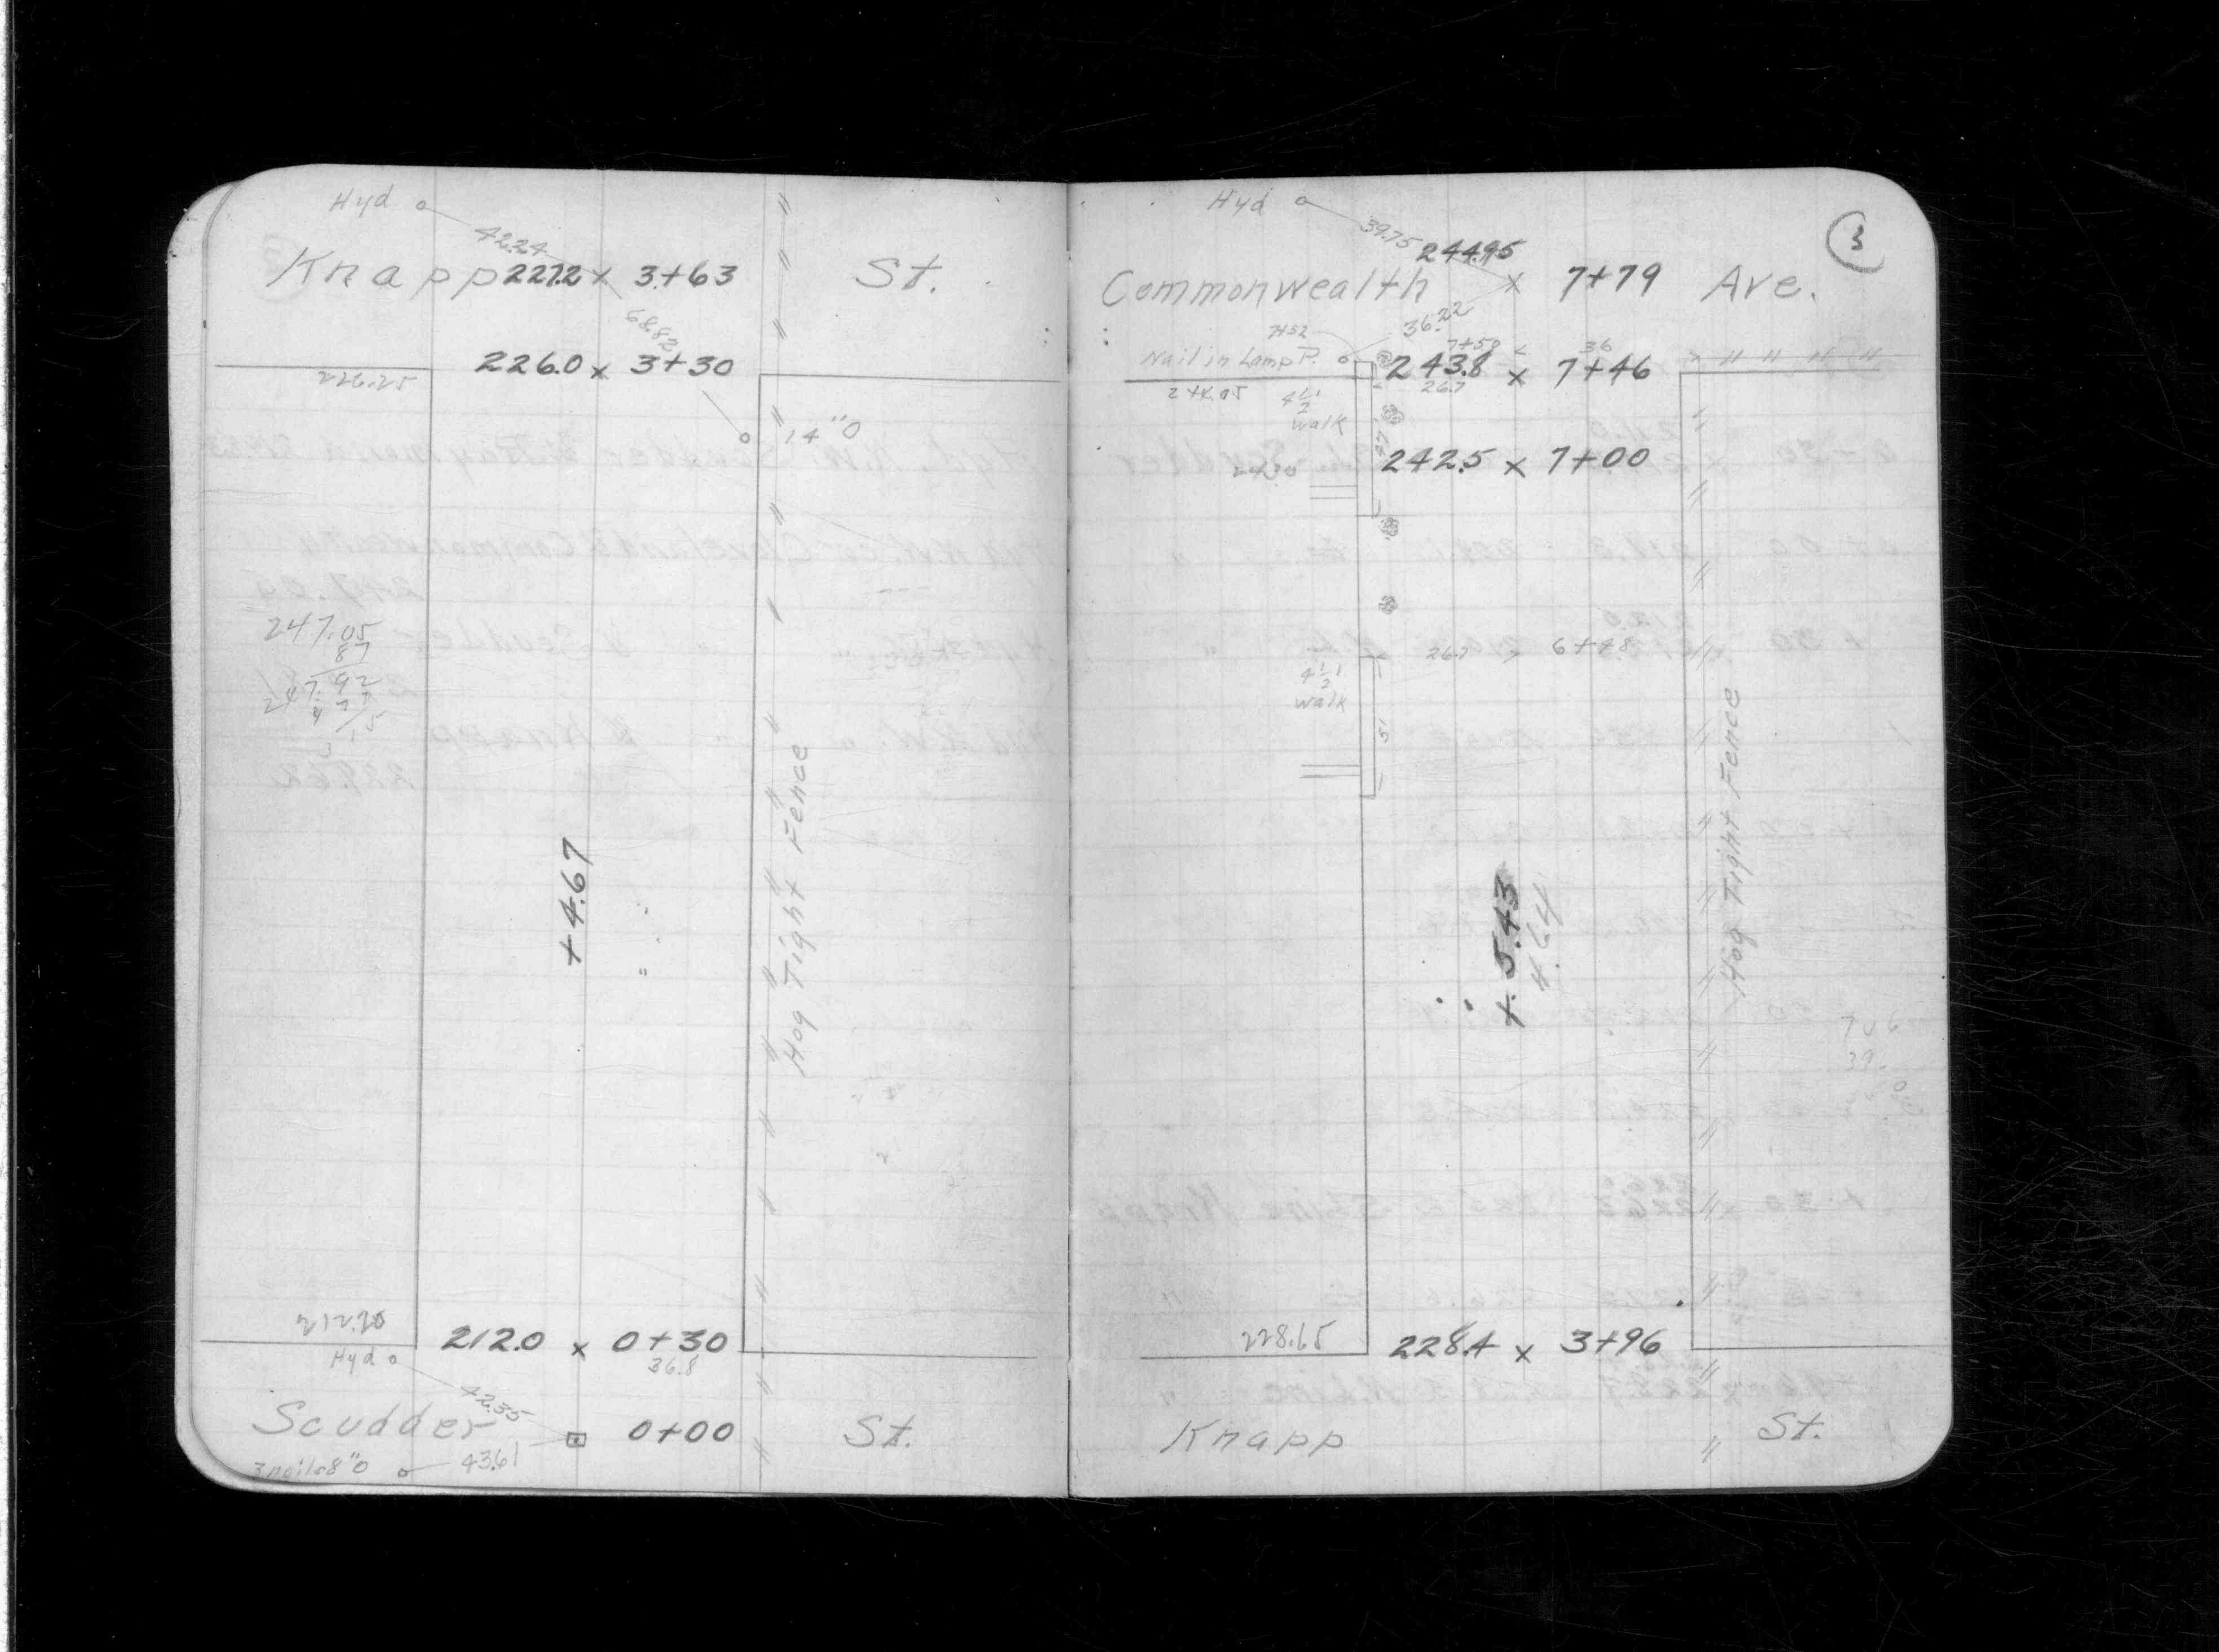 Hyd
42.24
Knapp 227.2 x 3+63 St.
68.82
226.0 x 3+30
226.25
14"O
247.05
87
247.92
+4.67
Hog Tight Fence
212.20
212.0 x 0+30
36.8
Hyd
42.35
Scudder 0+00 St.
3 nails 8"O 43.61
3
Hyd
39.75
244.95
Commonwealth x 7+79 Ave.
36.22
7+52
7+50
36
Nail in Lamp P. 243.8 x 7+46
26.7
244.05
4 1/2'
walk
242.5 x 7+00
26.7 6+48
4 1/2'
walk
51
+5.43
4.64
Hog Tight Fence
228.65
228.4 x 3+96
Knapp St.